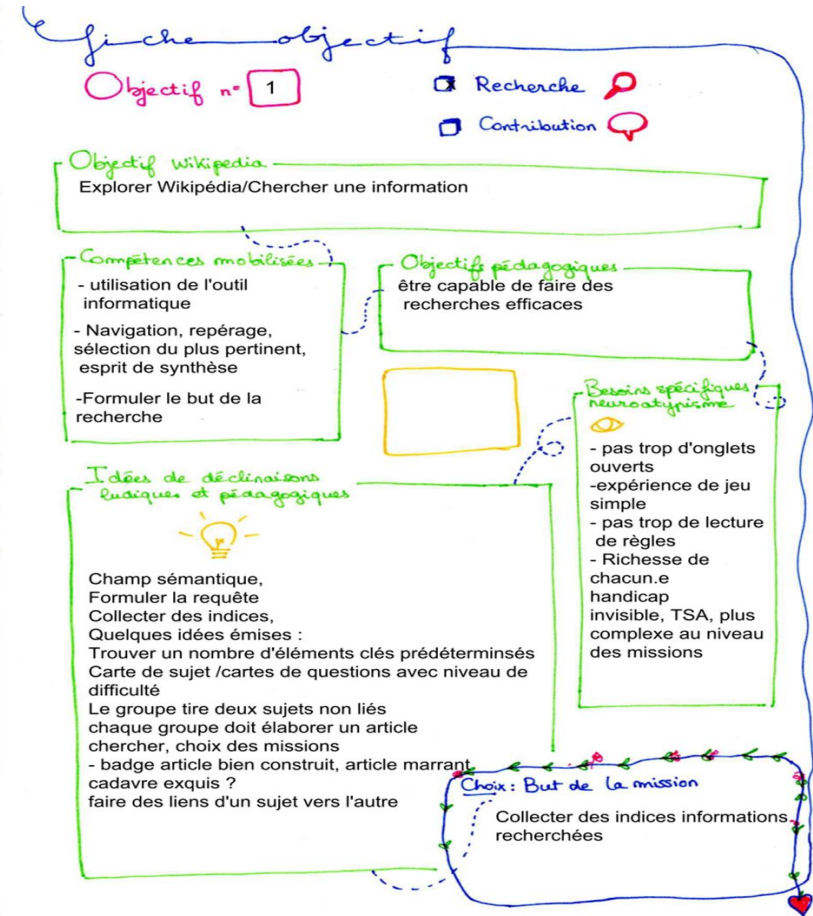 fiche objectif
Objectif n° 1
Recherche
Contribution
Objectif wikipedia
Explorer Wikipédia/Chercher une information
Compétences mobilisées
- utilisation de l'outil
informatique
- Navigation, repérage,
sélection du plus pertinent,
esprit de synthèse
-Formuler le but de la
recherche
Objectifs pédagogiques
être capable de faire des
recherches efficaces
Besoins spécifiques
neuroatypisme
- pas trop d'onglets
ouverts
-expérience de jeu
simple
- pas trop de lecture
de règles
- Richesse de
chacun.e
handicap
invisible, TSA, plus
complexe au niveau
des missions
Idées de déclinaisons
ludiques et pédagogiques
Champ sémantique,
Formuler la requête
Collecter des indices,
Quelques idées émises :
Trouver un nombre d'éléments clés prédéterminsés
Carte de sujet /cartes de questions avec niveau de
difficulté
Le groupe tire deux sujets non liés
chaque groupe doit élaborer un article
chercher, choix des missions
- badge article bien construit, article marrant
cadavre exquis ?
faire des liens d'un sujet vers l'autre
Choix : But de la mission
Collecter des indices informations
recherchées